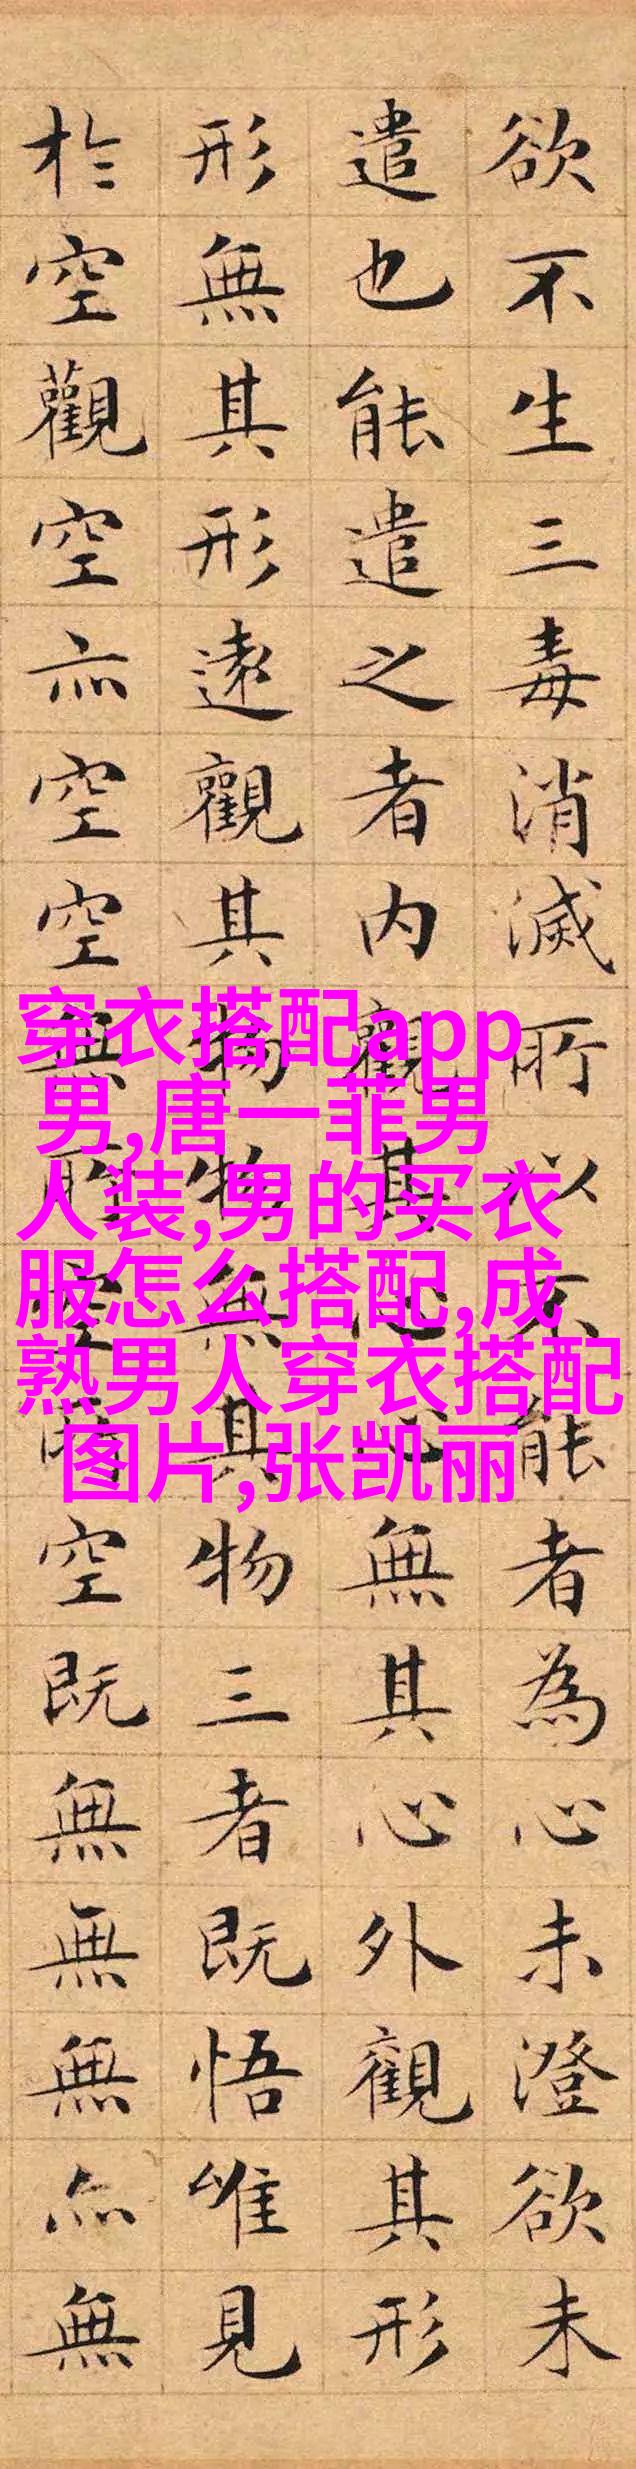 欲不生三毒消滅所以不能者為心未澄欲未
遣也能遣之者内觀其心心無其心外觀其形
形無其形遠觀其物物無其物三者既悟唯見
於空觀空亦空空無所空所空既無無無亦無
穿衣搭配app
男,唐一菲男
人装,男的买衣
服怎么搭配,成
熟男人穿衣搭配
图片,张凯丽